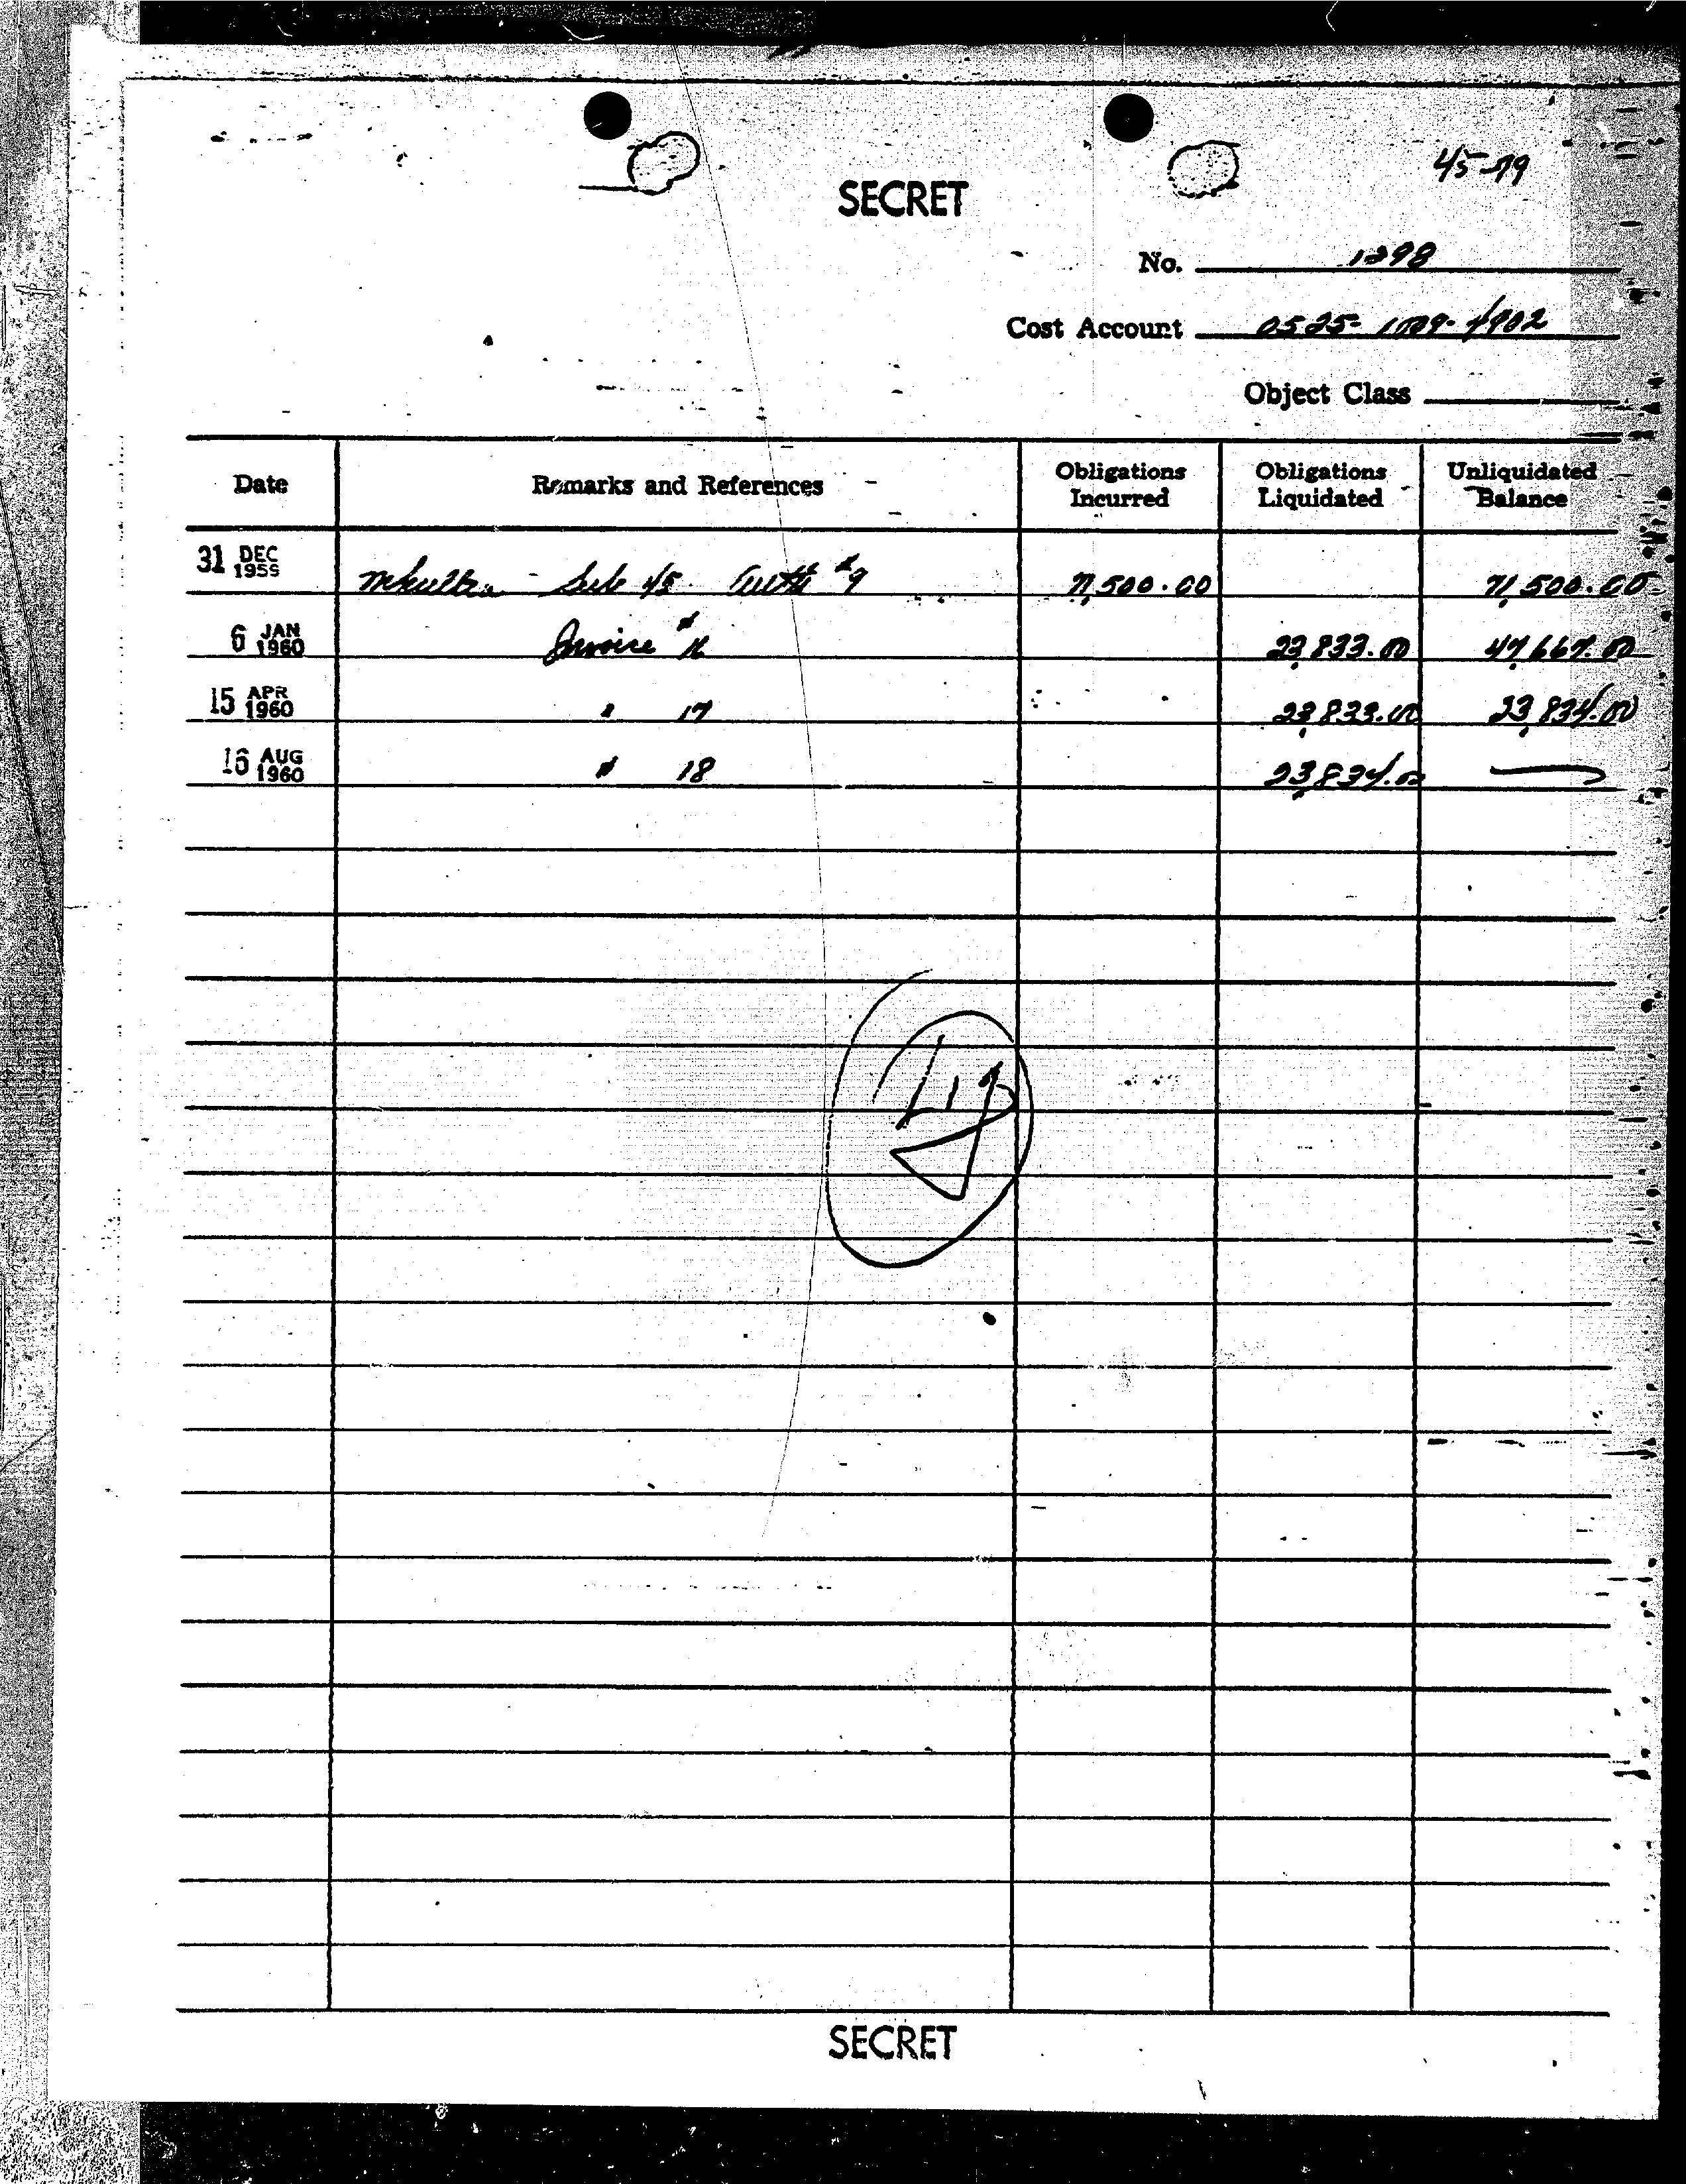 45-79
SECRET
No. 1298
Cost Account 0525-1009-4902
Object Class
Date Remarks and References Obligations Incurred Obligations Liquidated Unliquidated Balance
31 DEC 1959 Mkultra - Sub 45 Auth #9 71,500.00 71,500.00
6 JAN 1960 Invoice # 16 23,833.00 47,667.00
15 APR 1960 " 17 23,833.00 23,834.00
16 AUG 1960 " 18 23,834.00 —
SECRET